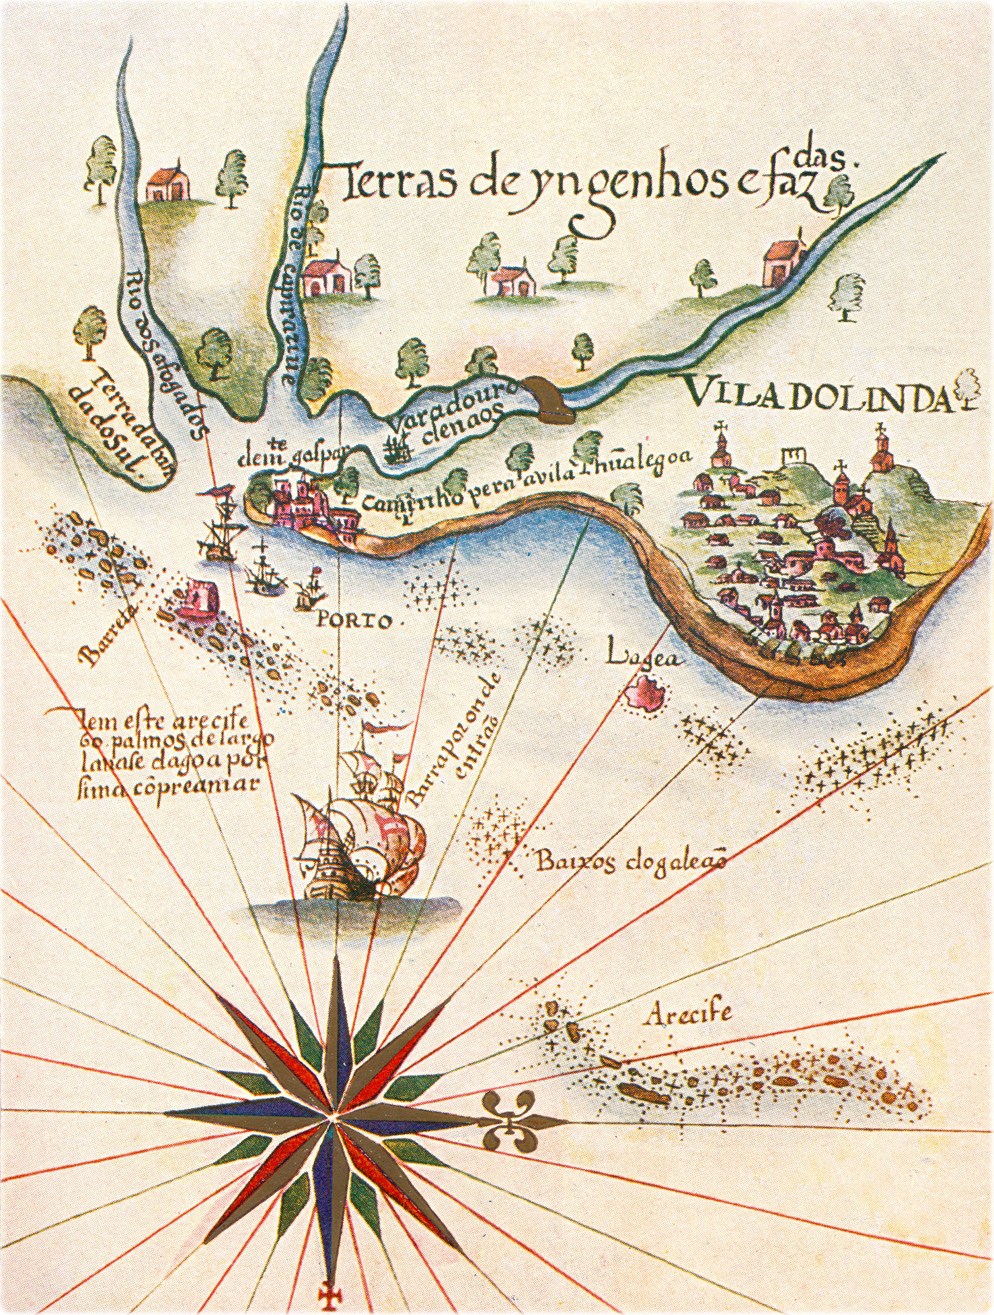 Terras de yngenhos e faz das.
Rio de capiratiue
Rio dos afogados
Terra dabãda
dado Sul.
Varadouro
denaos
VILA DOLINDA
dem te gaspar
caminho pera avila Thũalegoa
PORTO.
Barreta
Lagea
Item este arecife
60 palmos de largo
lauase dagoa por
sima cõpreamar
Barra por onde
entrão
Baixos dogaleaõ
Arecife